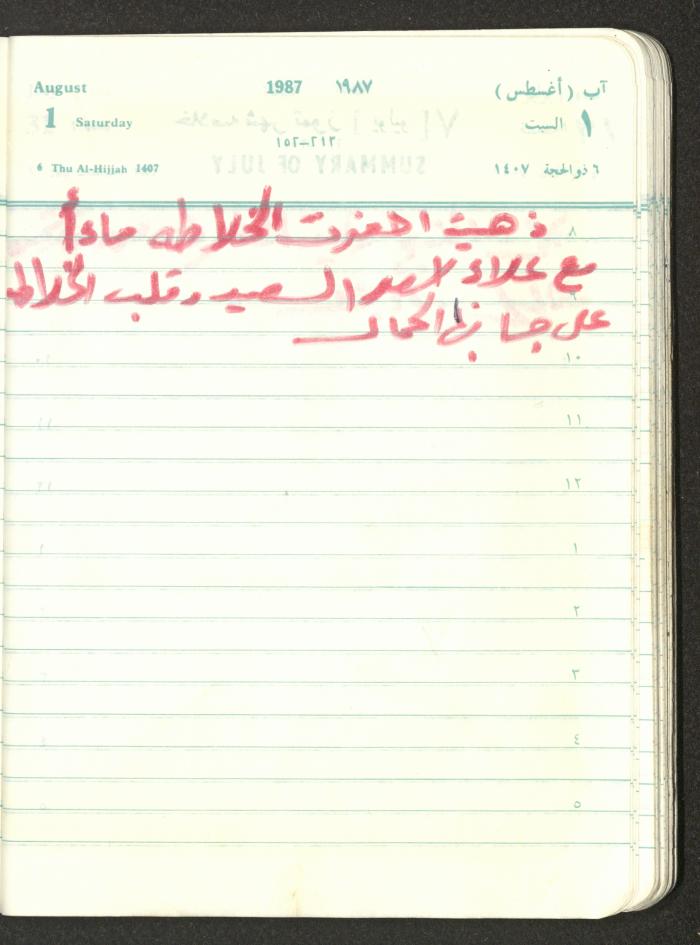 August 1987 ١٩٨٧ آب (أغسطس)
1 Saturday ١ السبت
٢١٣-١٥٢
6 Thu Al-Hijjah 1407 ٦ ذو الحجة ١٤٠٧
SUMMARY OF JULY
ذهبت احضرت الخلاطه مساءأ
مع علاء السعيد وقلب الخلاطه
على جانبها الحمال
٨
١٠
١١
١٢
١
٢
٣
٤
٥